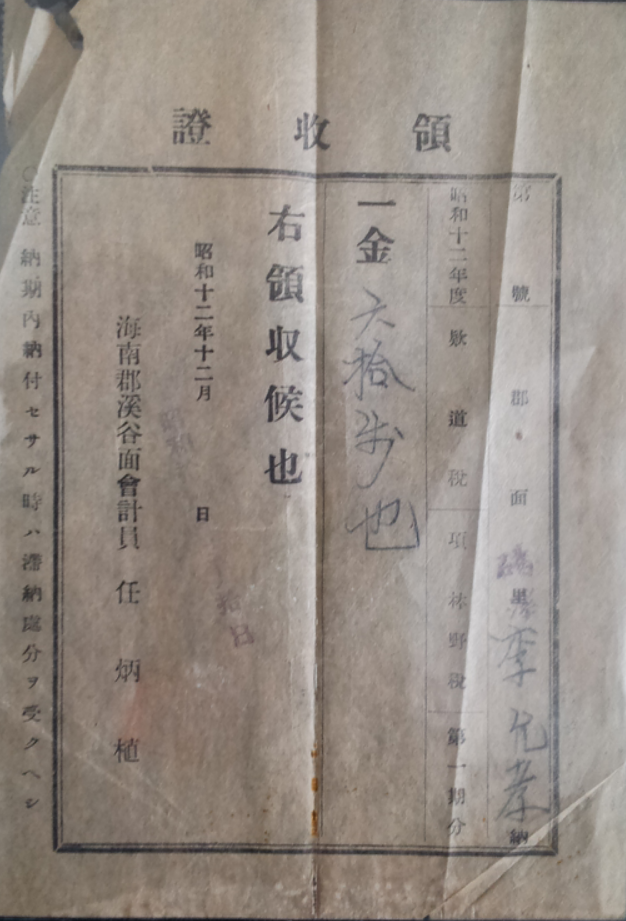 領收證
第 號 郡 面 里 李允孝 納
昭和十二年度 歀 道稅 項 林野稅 第一期分
一金 六拾 也
右領収候也
昭和十二年十二月 日
海南郡溪谷面會計員 任炳植
○注意 納期內納付セサル時ハ滯納處分ヲ受クヘシ